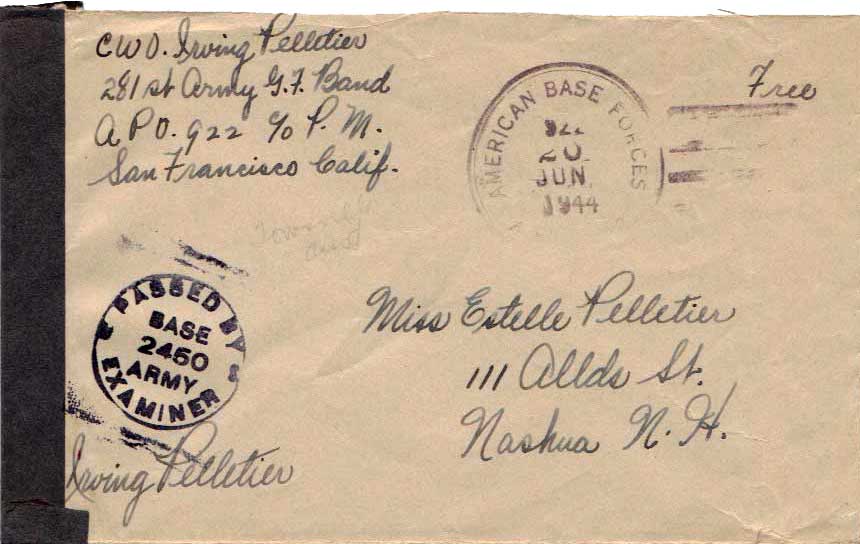 CWO. Irving Pelletier
281st Army G.F. Band
A P O. 922 c/o P. M.
San Francisco Calif.
AMERICAN BASE FORCES
922
20
JUN.
1944
Free
PASSED BY
BASE
2450
ARMY
EXAMINER
Miss Estelle Pelletier
111 Allds St.
Nashua N. H.
Irving Pelletier